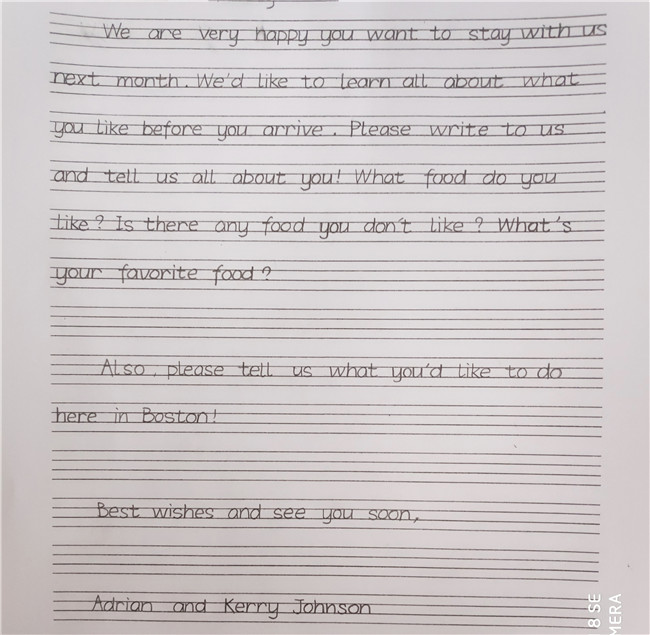 We are very happy you want to stay with us
next month. We'd like to learn all about what
you like before you arrive. Please write to us
and tell us all about you! What food do you
like? Is there any food you don't like? What's
your favorite food?
Also, please tell us what you'd like to do
here in Boston!
Best wishes and see you soon,
Adrian and Kerry Johnson
8 SE
MERA